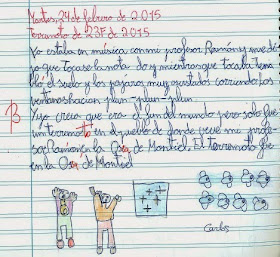 Martes, 24 de febrero de 2015
Terremoto de 23F de 2015
Yo estaba en música con mi profesor Ramón y me
que tocase la nota do y mientras que tocaba tem
bló el suelo y los pajaros muy asustados corriendo, las
ventanas hacian plun-plun-plun.
Yo creia que era el fin del mundo pero solo fue
un terremoto en el pueblo de donde vive mi profe
sor Ramón en la Osa de Montiel. El Terremoto fue
en la Osa de Montiel
B
Carlos